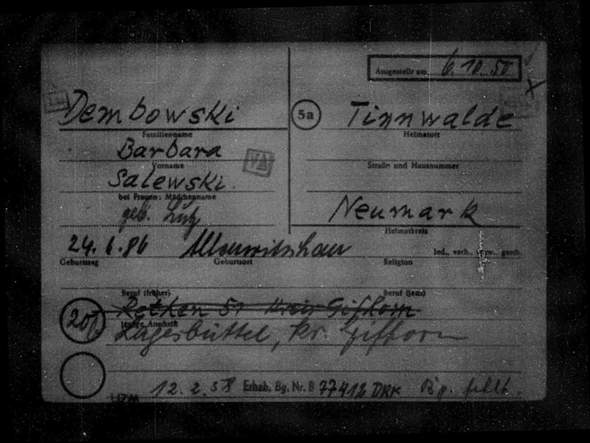 Ausgestellt am: 6.10.50
Dembowski
5a
Tinnwalde
Familienname
Heimatort
Barbara
Vorname
Straße und Hausnummer
Salewski
bei Frauen: Mädchenname
geb.
Neumark
Heimatkreis
24. 6. 86
Geburtstag
Geburtsort
Religion
led., verh., verw., gesch.
Beruf (früher)
Beruf (jetzt)
Rethen 51 Kreis Gifhorn
20
jetzige Anschrift
Lagesbüttel, Kr. Gifhorn
12. 2. 58 Erhab. Bg. Nr. B 77412 DRK Bg. fehlt.